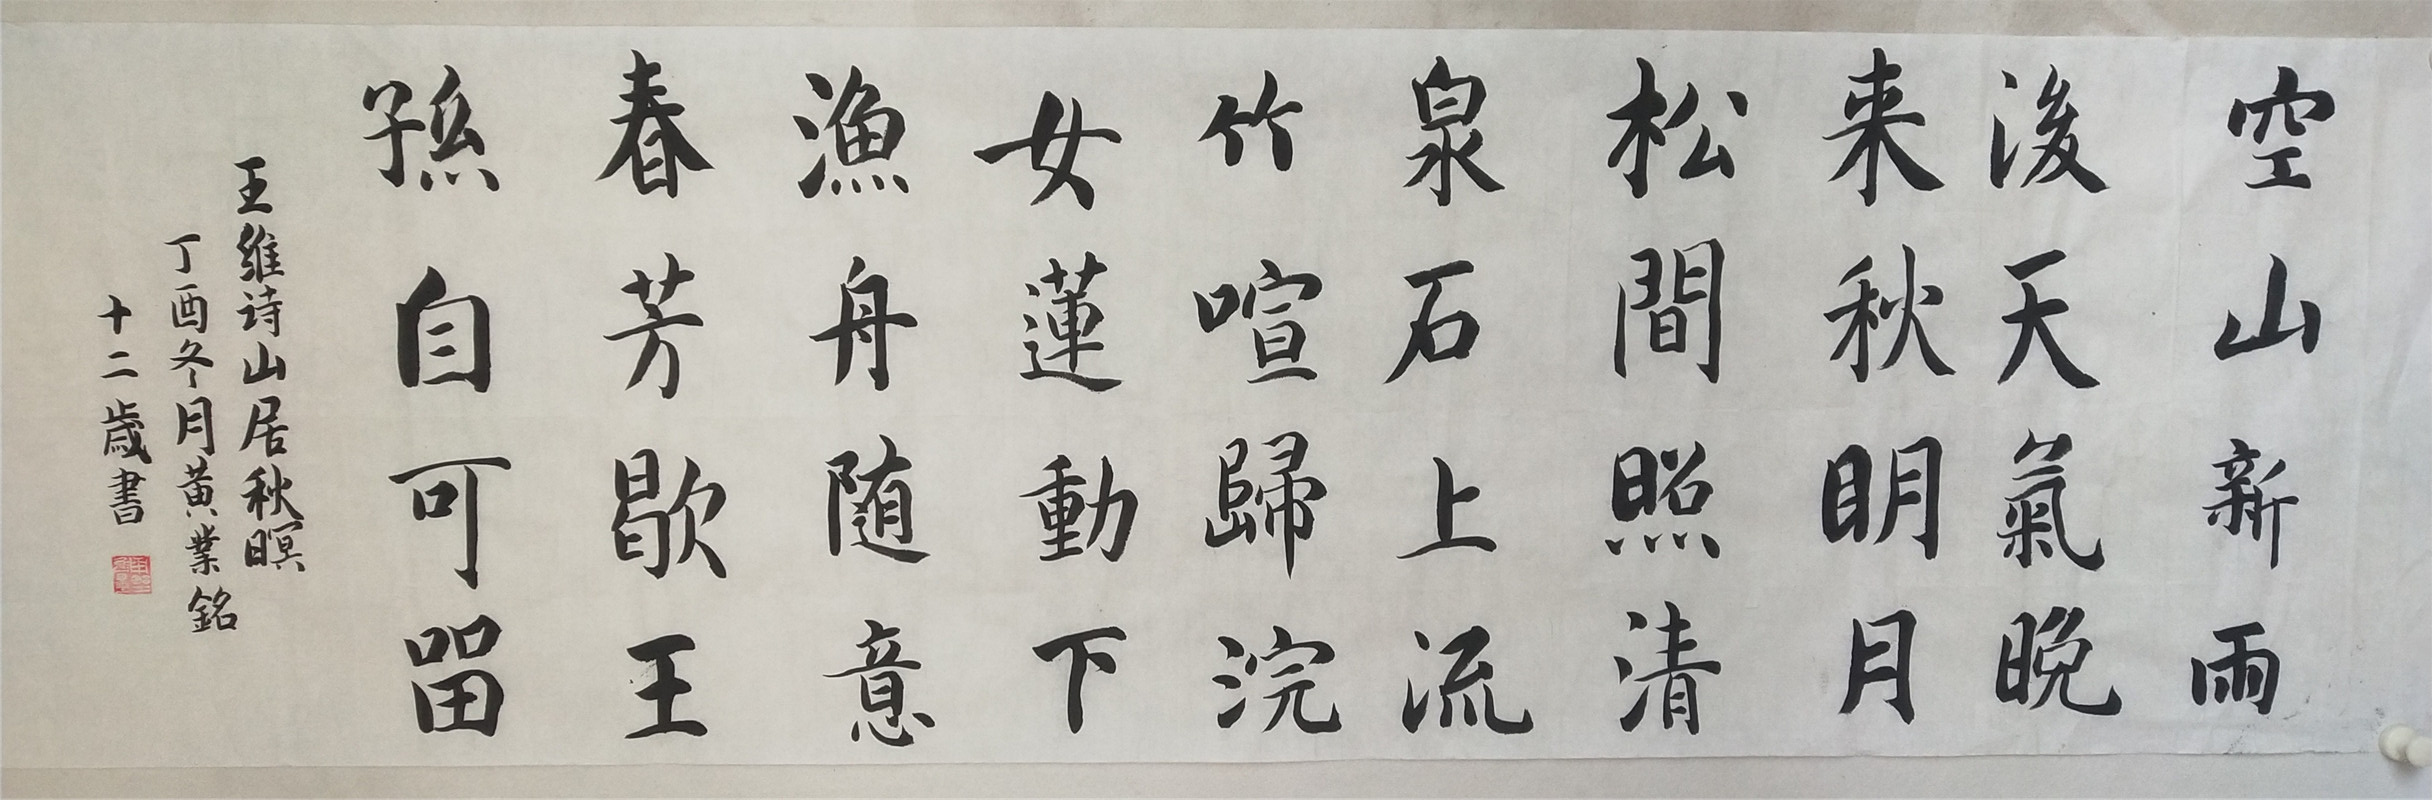 空山新雨
後天氣晚
来秋明月
松間照清
泉石上流
竹喧歸浣
女蓮動下
漁舟随意
春芳歇王
孫自可留
王維诗山居秋暝
丁酉冬月黄業銘
十二歲書